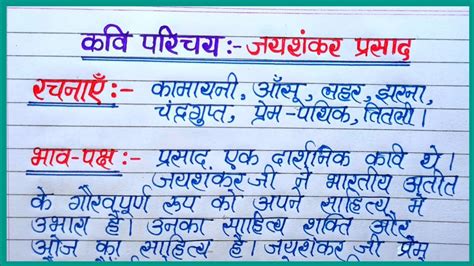 कवि परिचय:- जयशंकर प्रसाद
रचनाएँ:- कामायनी, आँसू, लहर, झरना,
चंद्रगुप्त, प्रेम-पथिक, तितली।
भाव-पक्ष:- प्रसाद एक दार्शनिक कवि थे।
जयशंकर जी ने भारतीय अतीत
के गौरवपूर्ण रूप को अपने साहित्य में
उभारा है। उनका साहित्य शक्ति और
ओज का साहित्य है। जयशंकर जी प्रेम